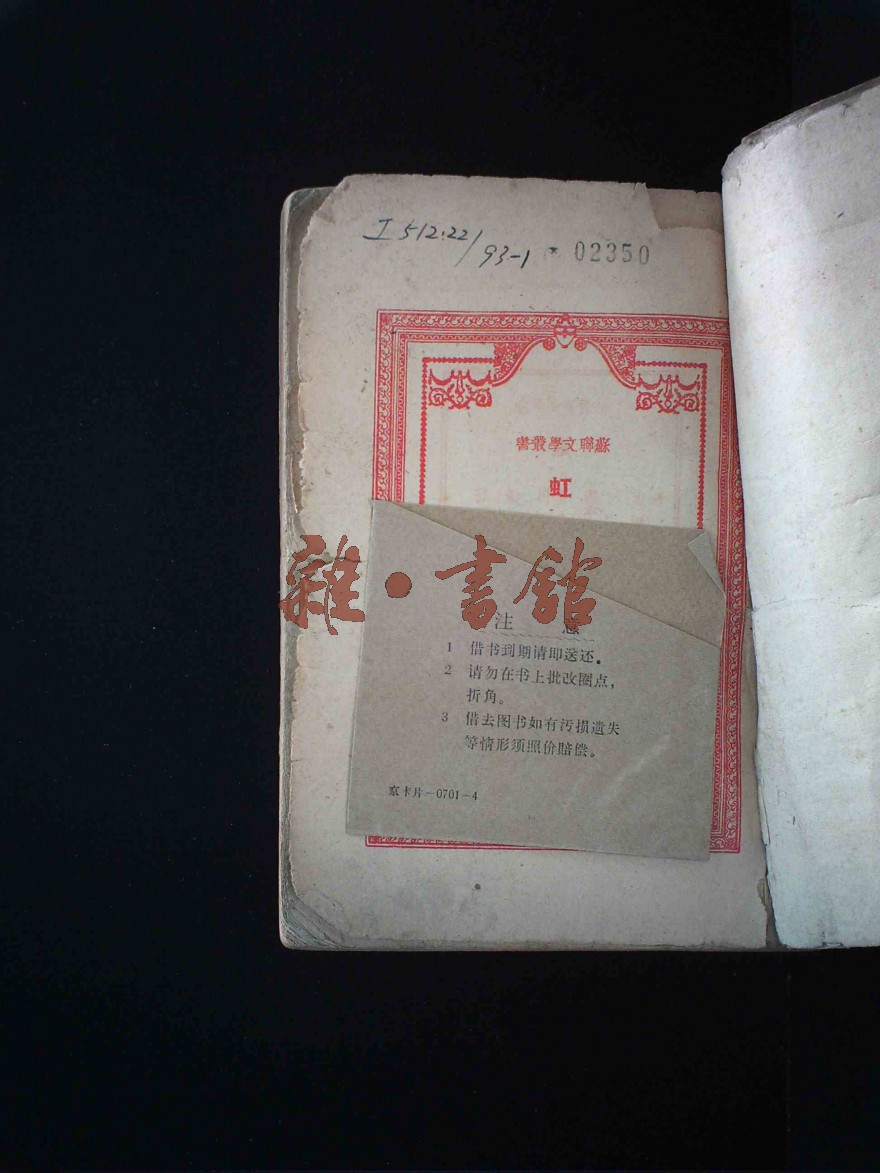 I 512.22/93-1 * 02350
書叢學文聯蘇
虹
雜·書館
注 意
1 借书到期请即送还。
2 请勿在书上批改圈点，
折角。
3 借去图书如有污損遗失
等情形须照价賠償。
京卡片－0701－4